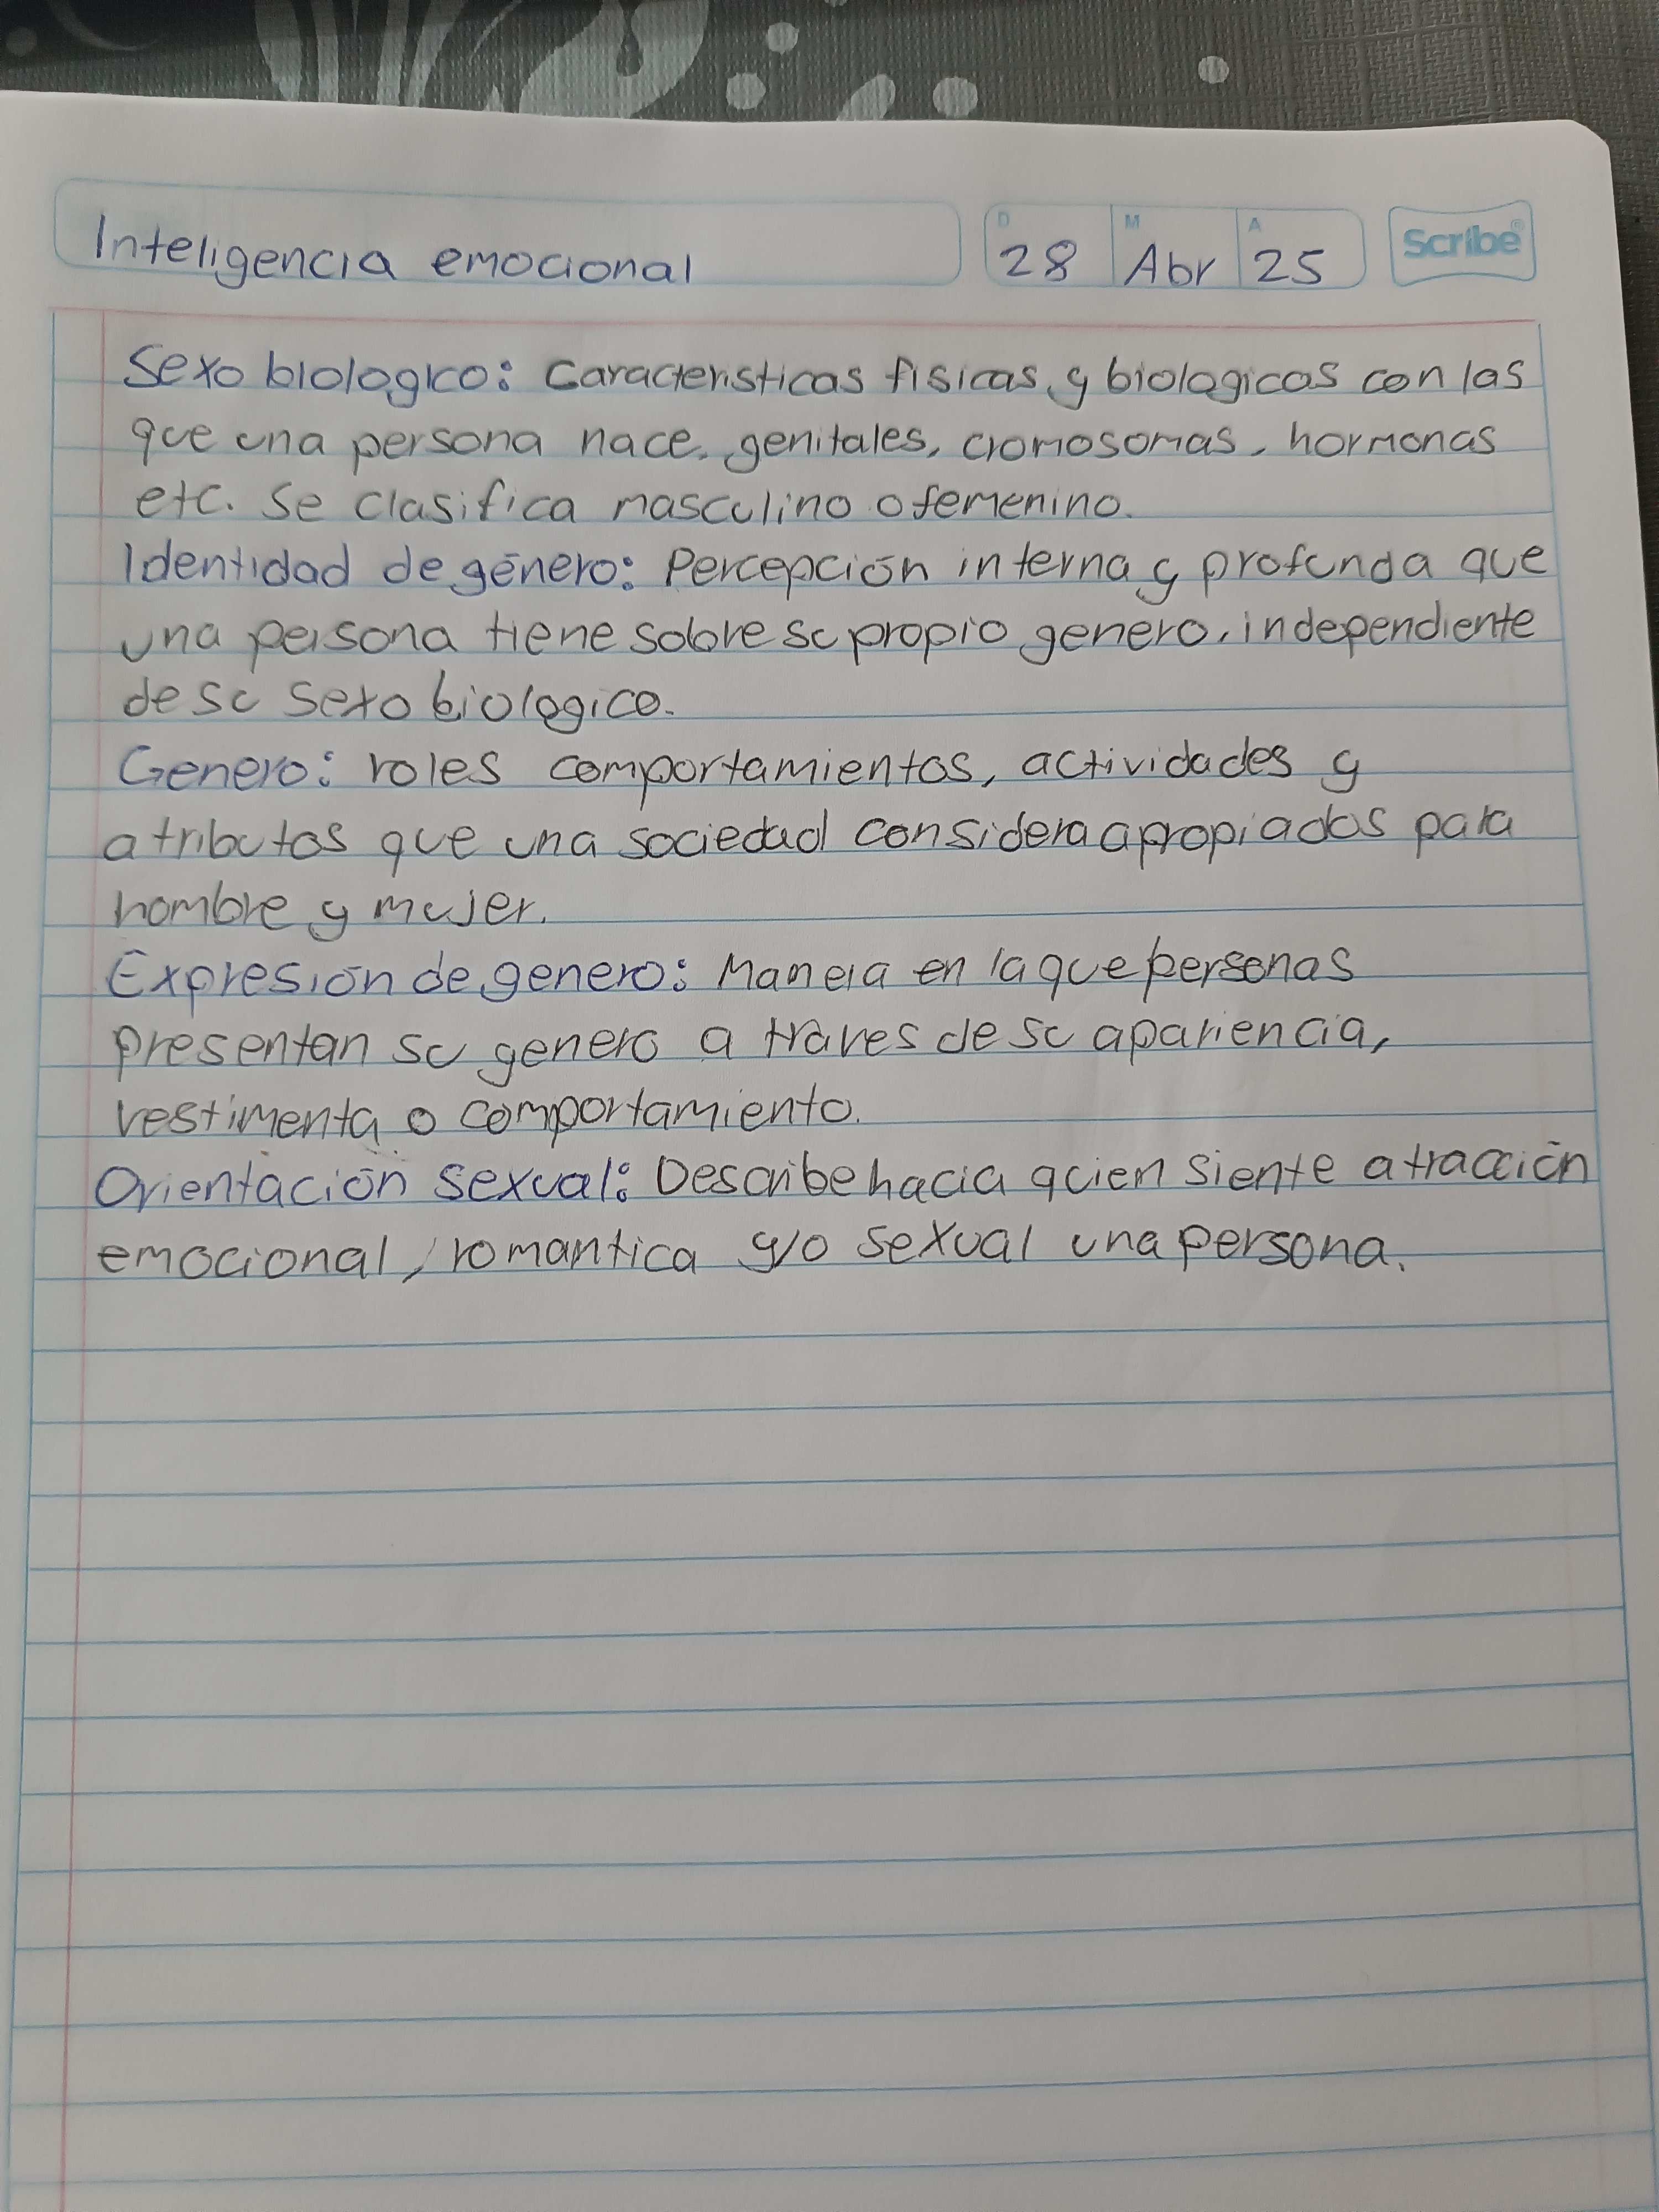 Inteligencia emocional
D 28 M Abr A 25
Scribe®
Sexo biologico: Caracteristicas fisicas y biologicas con las
que una persona nace, genitales, cromosomas, hormonas
etc. Se clasifica masculino o femenino.
Identidad de género: Percepción interna y profunda que
una persona tiene sobre su propio genero, independiente
de su sexo biologico.
Genero: roles comportamientos, actividades y
atributos que una sociedad considera apropiados para
hombre y mujer.
Expresión de genero: Manera en la que personas
presentan su genero a traves de su apariencia,
vestimenta o comportamiento.
Orientación sexual: Describe hacia quien siente atracción
emocional, romantica y/o sexual una persona.